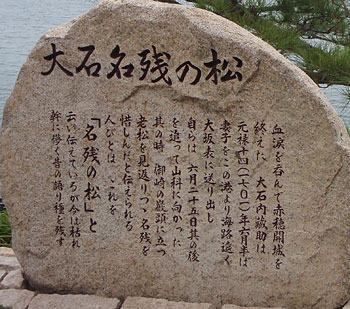 大石名残の松
血涙を呑んで赤穂開城を
終えた 大石内蔵助は
元禄十四(一七〇一)年六月半ば
妻子をこの港より海路遠く
大坂表に送り出し
自らは 六月二十五日其の後
を追って山科に向かった
其の時 御崎の巌頭に立つ
老松を見返りつゝ名残を
惜しんだと伝えられる
人びとは、これを
「名残の松」と
云い伝えているが今は枯れ
幹に儚く昔の語り種を残す